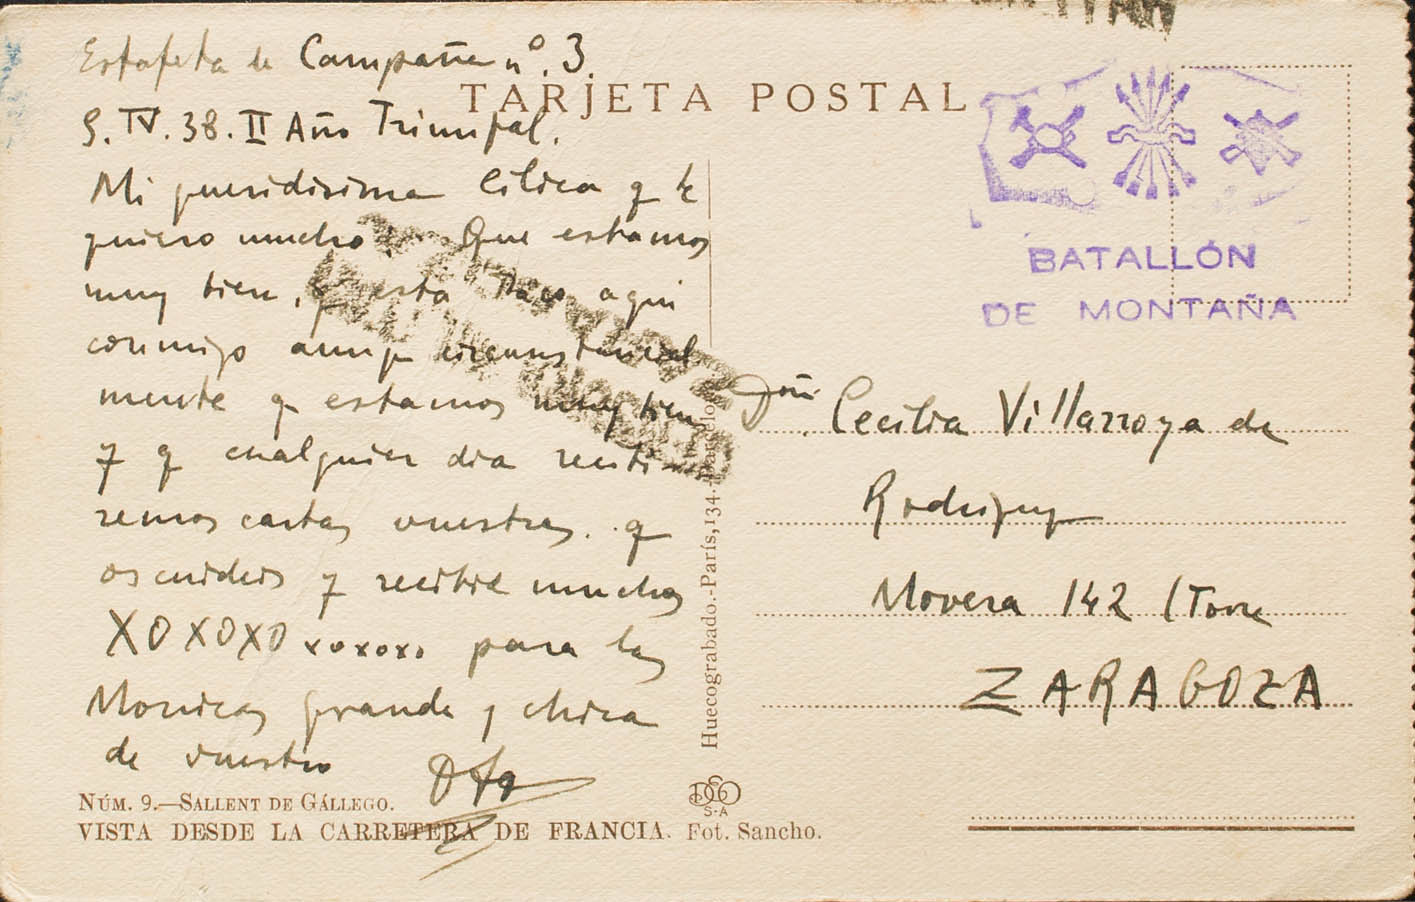 Estafeta de Campaña nº. 3
9. IV. 38. II Año Triunfal.
Mi queridisima Cilica q te
quiero mucho. Que estamos
muy bien, q está Paco aqui
conmigo aunq circunstancial
mente q estamos muy bien
y q cualquier dia recibi-
remos cartas vuestras. q
os cuideis y recibid muchos
XOXOXOxoxoxo para las
Monicas grande y chica
de vuestro
TARJETA POSTAL
BATALLÓN
DE MONTAÑA
Doña Cecilia Villarroya de
Rodriguez
Movera 142 (Torre
ZARAGOZA
Huecograbado.-París, 134.-Barcelona
NÚM. 9.—SALLENT DE GÁLLEGO.
VISTA DESDE LA CARRETERA DE FRANCIA. Fot. Sancho.
S.A